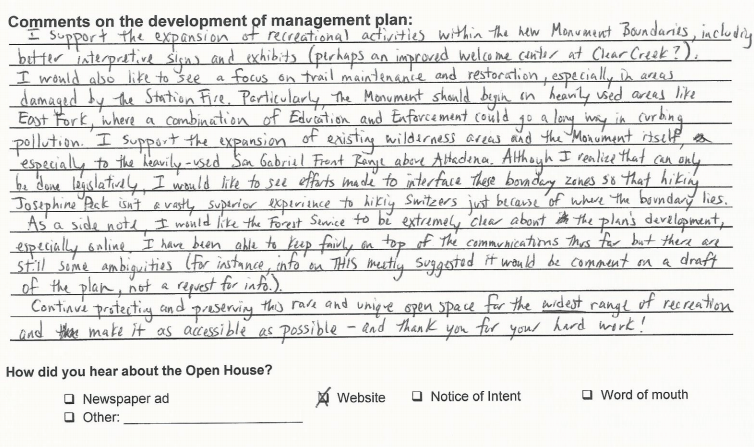 Comments on the development of management plan:
I support the expansion of recreational activities within the new Monument Boundaries, including
better interpretive signs and exhibits (perhaps an improved welcome center at Clear Creek?).
I would also like to see a focus on trail maintenance and restoration, especially in areas
damaged by the Station Fire. Particularly, the Monument should begin on heavily used areas like
East Fork, where a combination of Education and Enforcement could go a long way in curbing
pollution. I support the expansion of existing wilderness areas and the Monument itself,
especially to the heavily-used San Gabriel Front Range above Altadena. Although I realize that can only
be done legislatively, I would like to see efforts made to interface these boundary zones so that hiking
Josephine Peak isn't a vastly superior experience to hiking Switzers just because of where the boundary lies.
As a side note, I would like the Forest Service to be extremely clear about the plan's development,
especially online. I have been able to keep fairly on top of the communications thus far but there are
still some ambiguities (for instance, info on THIS meeting suggested it would be comment on a draft
of the plan, not a request for info.).
Continue protecting and preserving this rare and unique open space for the widest range of recreation
and make it as accessible as possible - and thank you for your hard work!
How did you hear about the Open House?
Newspaper ad Website Notice of Intent Word of mouth
Other: